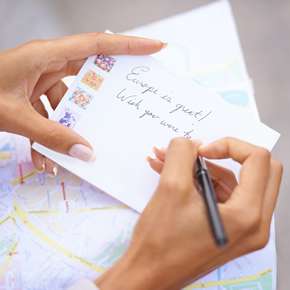 Europe is great!
Wish you were h